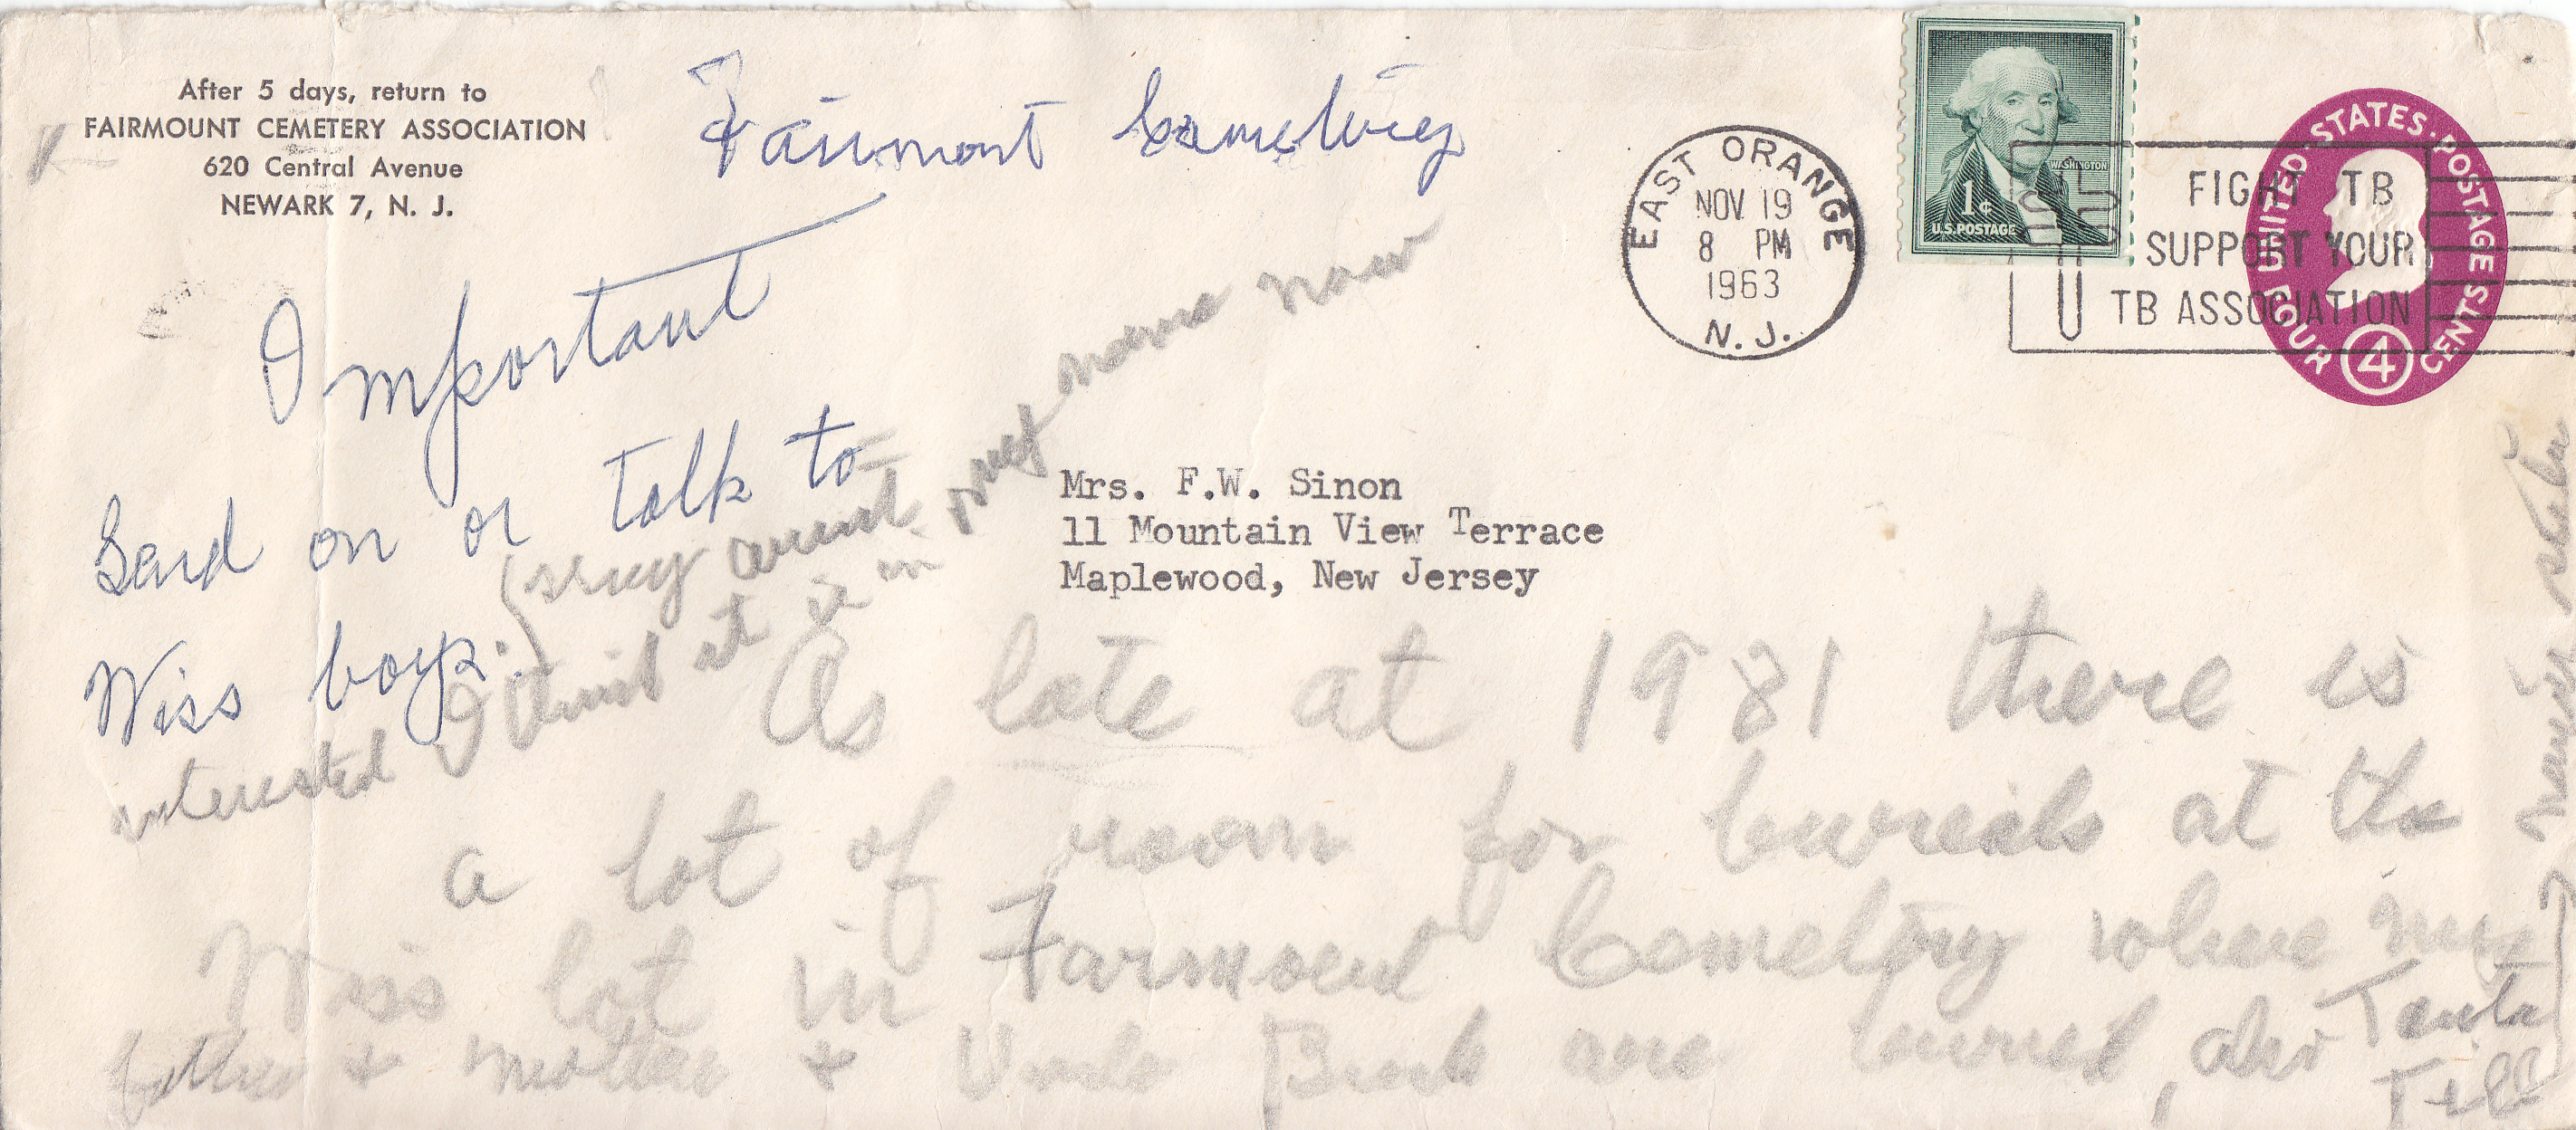 After 5 days, return to
FAIRMOUNT CEMETERY ASSOCIATION
620 Central Avenue
NEWARK 7, N. J.
Fairmont Cemetery
EAST ORANGE
NOV 19
8 PM
1963
N. J.
WASHINGTON
1¢
U.S. POSTAGE
UNITED STATES POSTAGE
FOUR CENTS
4
FIGHT TB
SUPPORT YOUR
TB ASSOCIATION
Important
Send on or talk to
Wiss boys.
Mrs. F.W. Sinon
11 Mountain View Terrace
Maplewood, New Jersey
(sruy arent
interested I think it is in my name now
As late at 1981 there is
a lot of room for burials at the
Wiss lot in Fairmount Cemetery where my
father & mother & Uncle are buried, also Tanta
Till